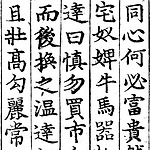 同心何必富貴然
宅奴婢牛馬器物
達曰慎勿買市人
而後換之温達如
且壯高勾麗常以